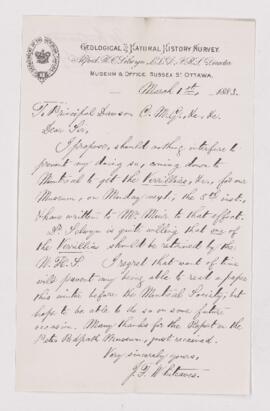 GEOLOGICAL & NATURAL HISTORY SURVEY.
Alfred R. C. Selwyn, LL.D., F.R.S., Director
MUSEUM & OFFICE, SUSSEX ST OTTAWA,
March 1st, 1883.
To Principal Dawson C. M. G. &c, &c.
Dear Sir,
I propose, should nothing interfere to
prevent my doing so, coming down to
Montreal to get the Verrillias, &c., for our
Museum, on Monday next, the 5th inst.,
& have written to Mr. Muir to that effect.
Dr. Selwyn is quite willing that one of
the Verrillias should be retained by the
N. H. S. I regret that want of time
will prevent my being able to read a paper
this winter before the Montreal Society, but
hope to be able to do so on some future
occasion. Many thanks for the Report on the
Peter Redpath Museum, just received.
Very sincerely yours,
J. F. Whiteaves.